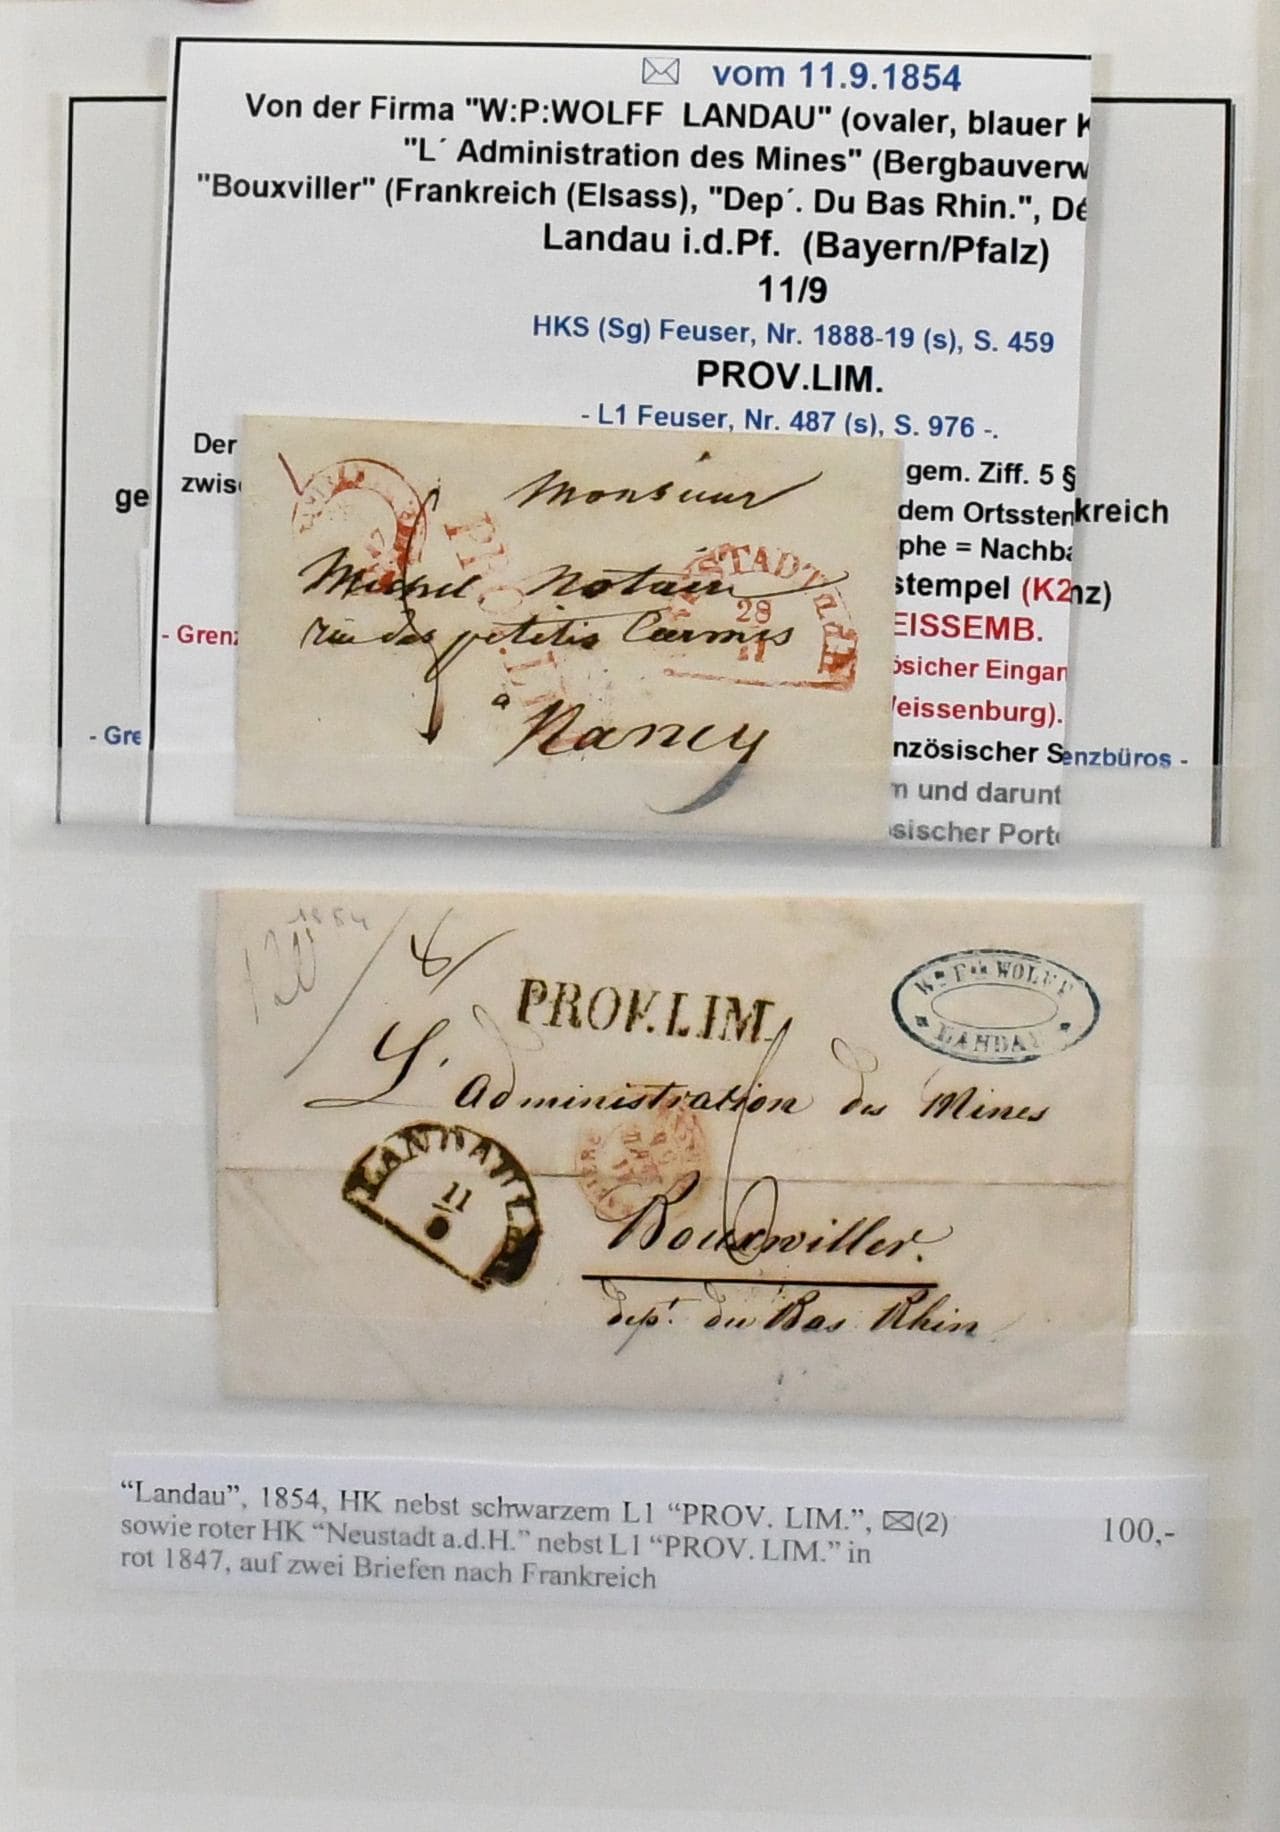 vom 11.9.1854
Von der Firma "W:P:WOLFF LANDAU" (ovaler, blauer K
"L´ Administration des Mines" (Bergbauverw
"Bouxviller" (Frankreich (Elsass), "Dep´. Du Bas Rhin.", Dé
Landau i.d.Pf. (Bayern/Pfalz)
11/9
HKS (Sg) Feuser, Nr. 1888-19 (s), S. 459
PROV.LIM.
- L1 Feuser, Nr. 487 (s), S. 976 -.
Der
gem. Ziff. 5 §
zwis
ge
dem Ortssten
kreich
phe = Nachba
stempel (K2
nz)
- Grenz
EISSEMB.
ösicher Eingan
Weissenburg).
- Gre
nzösischer S
enzbüros -
m und darunt
sischer Porto
Monsieur
Michel Notaire
rue des petites Carmes
à
Nancy
STADT a d H
28
11
17
PRO
1854
120
PROV.LIM.
WOLFF
LANDAU
L' Administration des Mines
LANDAU
11
Bouxwiller.
dept. du Bas Rhin
“Landau”, 1854, HK nebst schwarzem L1 “PROV. LIM.”, ✉(2)
sowie roter HK “Neustadt a.d.H.” nebst L1 “PROV. LIM.” in
rot 1847, auf zwei Briefen nach Frankreich
100,-